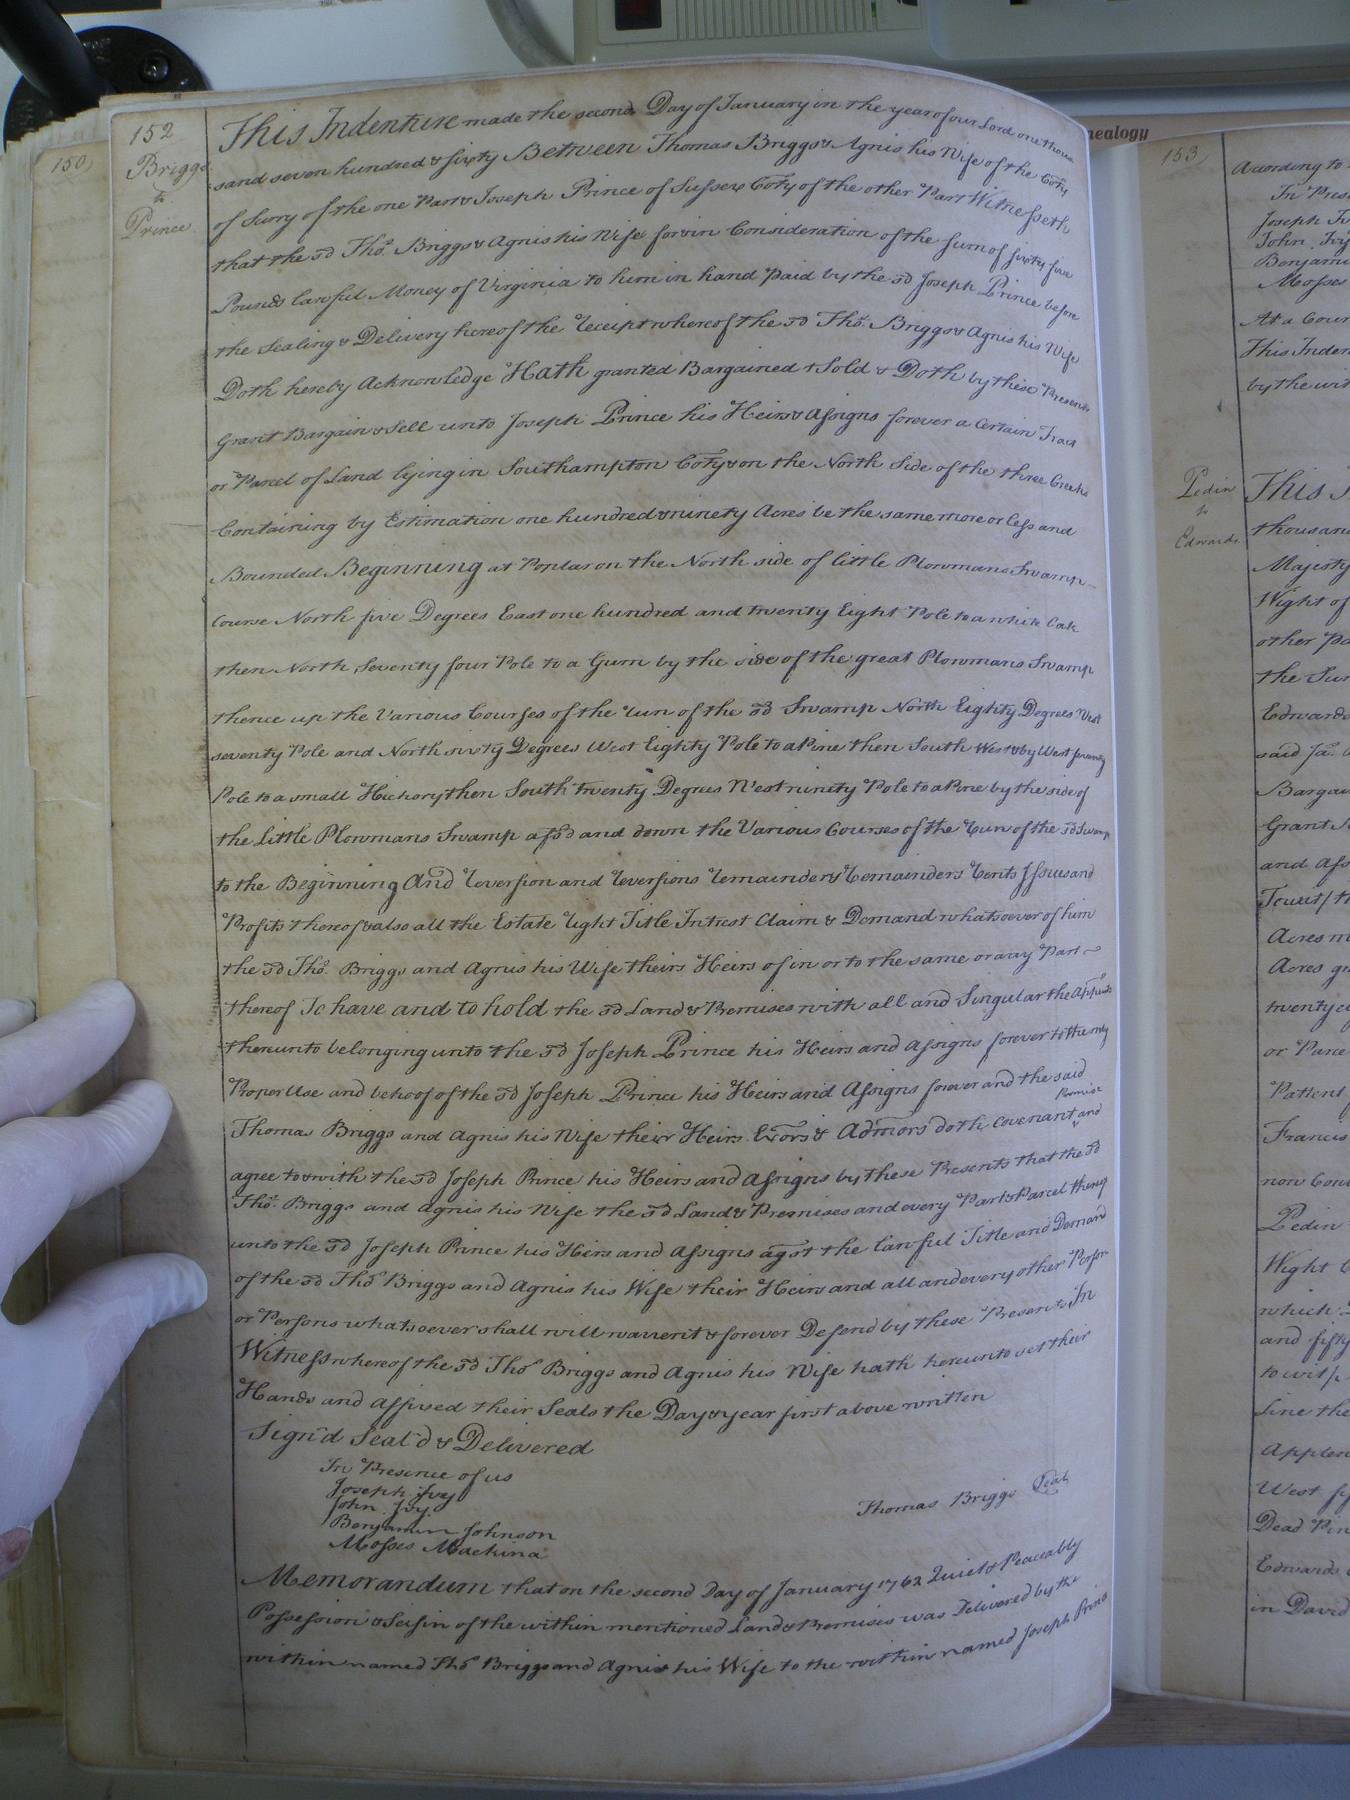 152
Briggs
to
Prince
This Indenture made the second Day of January in the year of our Lord one thou
sand seven hundred & sixty Between Thomas Briggs & Agnis his Wife of the Coty
of Surry of the one Part & Joseph Prince of Sussex Coty of the other Part Witnesseth
that the sd Thos. Briggs & Agnis his Wife for & in Consideration of the Sum of sixty five
Pounds Lawful Money of Virginia to him in hand Paid by the sd Joseph Prince before
the Sealing & Delivery hereof the Receipt whereof the sd Thos. Briggs & Agnis his Wife
Doth hereby Acknowledge Hath granted Bargained & Sold & Doth by these Presents
Grant Bargain & Sell unto Joseph Prince his Heirs & Assigns forever a Certain Tract
or Parcel of Land lying in Southampton Coty & on the North Side of the three Creeks
Containing by Estimation one hundred & ninety Acres be the same more or less and
Bounded Beginning at Poplar on the North side of little Plowmans Swamp
Course North five Degrees East one hundred and twenty Eight Pole to a white Oak
then North Seventy four Pole to a Gum by the side of the great Plowmans Swamp
thence up the Various Courses of the Run of the sd Swamp North Eighty Degrees West
seventy Pole and North sixty Degrees West Eighty Pole to a Pine then South West & by West seventy
Pole to a small Hickory then South twenty Degrees West ninety Pole to a Pine by the side of
the Little Plowmans Swamp afsd and down the Various Courses of the Run of the sd Swamp
to the Beginning And Reversion and Reversions Remainder & Remainders Rents Issues and
Profits thereof & also all the Estate Right Title Intrest Claim & Demand whatsoever of him
the sd Thos. Briggs and Agnis his Wife theirs Heirs of in or to the same or any Part
thereof To have and to hold the sd Land & Premises with all and Singular the Appurts
thereunto belonging unto the sd Joseph Prince his Heirs and Assigns forever to the only
Proper Use and behoof of the sd Joseph Prince his Heirs and Assigns forever and the said
Thomas Briggs and Agnis his Wife their Heirs Exors & Admors doth Covenant Promise and
agree to & with the sd Joseph Prince his Heirs and Assigns by these Presents that the sd
Thos. Briggs and Agnis his Wife the sd Land & Premises and every Part & Parcel thereof
unto the sd Joseph Prince his Heirs and Assigns agst the Lawful Title and Demand
of the sd Thos Briggs and Agnis his Wife their Heirs and all and every other Person
or Persons whatsoever shall will warrent & forever Defend by these Presents In
Witness whereof the sd Thos Briggs and Agnis his Wife hath hereunto set their
Hands and affixed their Seals the Day & year first above written
Sign'd Seal'd & Delivered
In Presence of us
Joseph Ivy
John Ivy
Benjamin Johnson
Mosses Mackina
Thomas Briggs Seal
Memorandum that on the second Day of January 1762 Quiet & Peaceably
Possession & Seisin of the within mentioned Land & Premises was Delivered by the
within named Thos Briggs and Agnis his Wife to the within named Joseph Prince
150
nealogy
153
According to
In Pres
Joseph Iv
John Ivy
Benjami
Mosses
At a Cour
This Inden
by the wit
Pedin
to
Edwards
This I
thousan
Majesty
Wight of
other Pa
the Sum
Edwards
said Ja.
Bargai
Grant
and Ass
Towit / th
Acres m
Acres gr
twenty
or Parce
Pattent
Francis
now
Pedin
Wight
which
and fifty
to wit /
Line the
Appl
West
Dead Pin
Edwards
in David